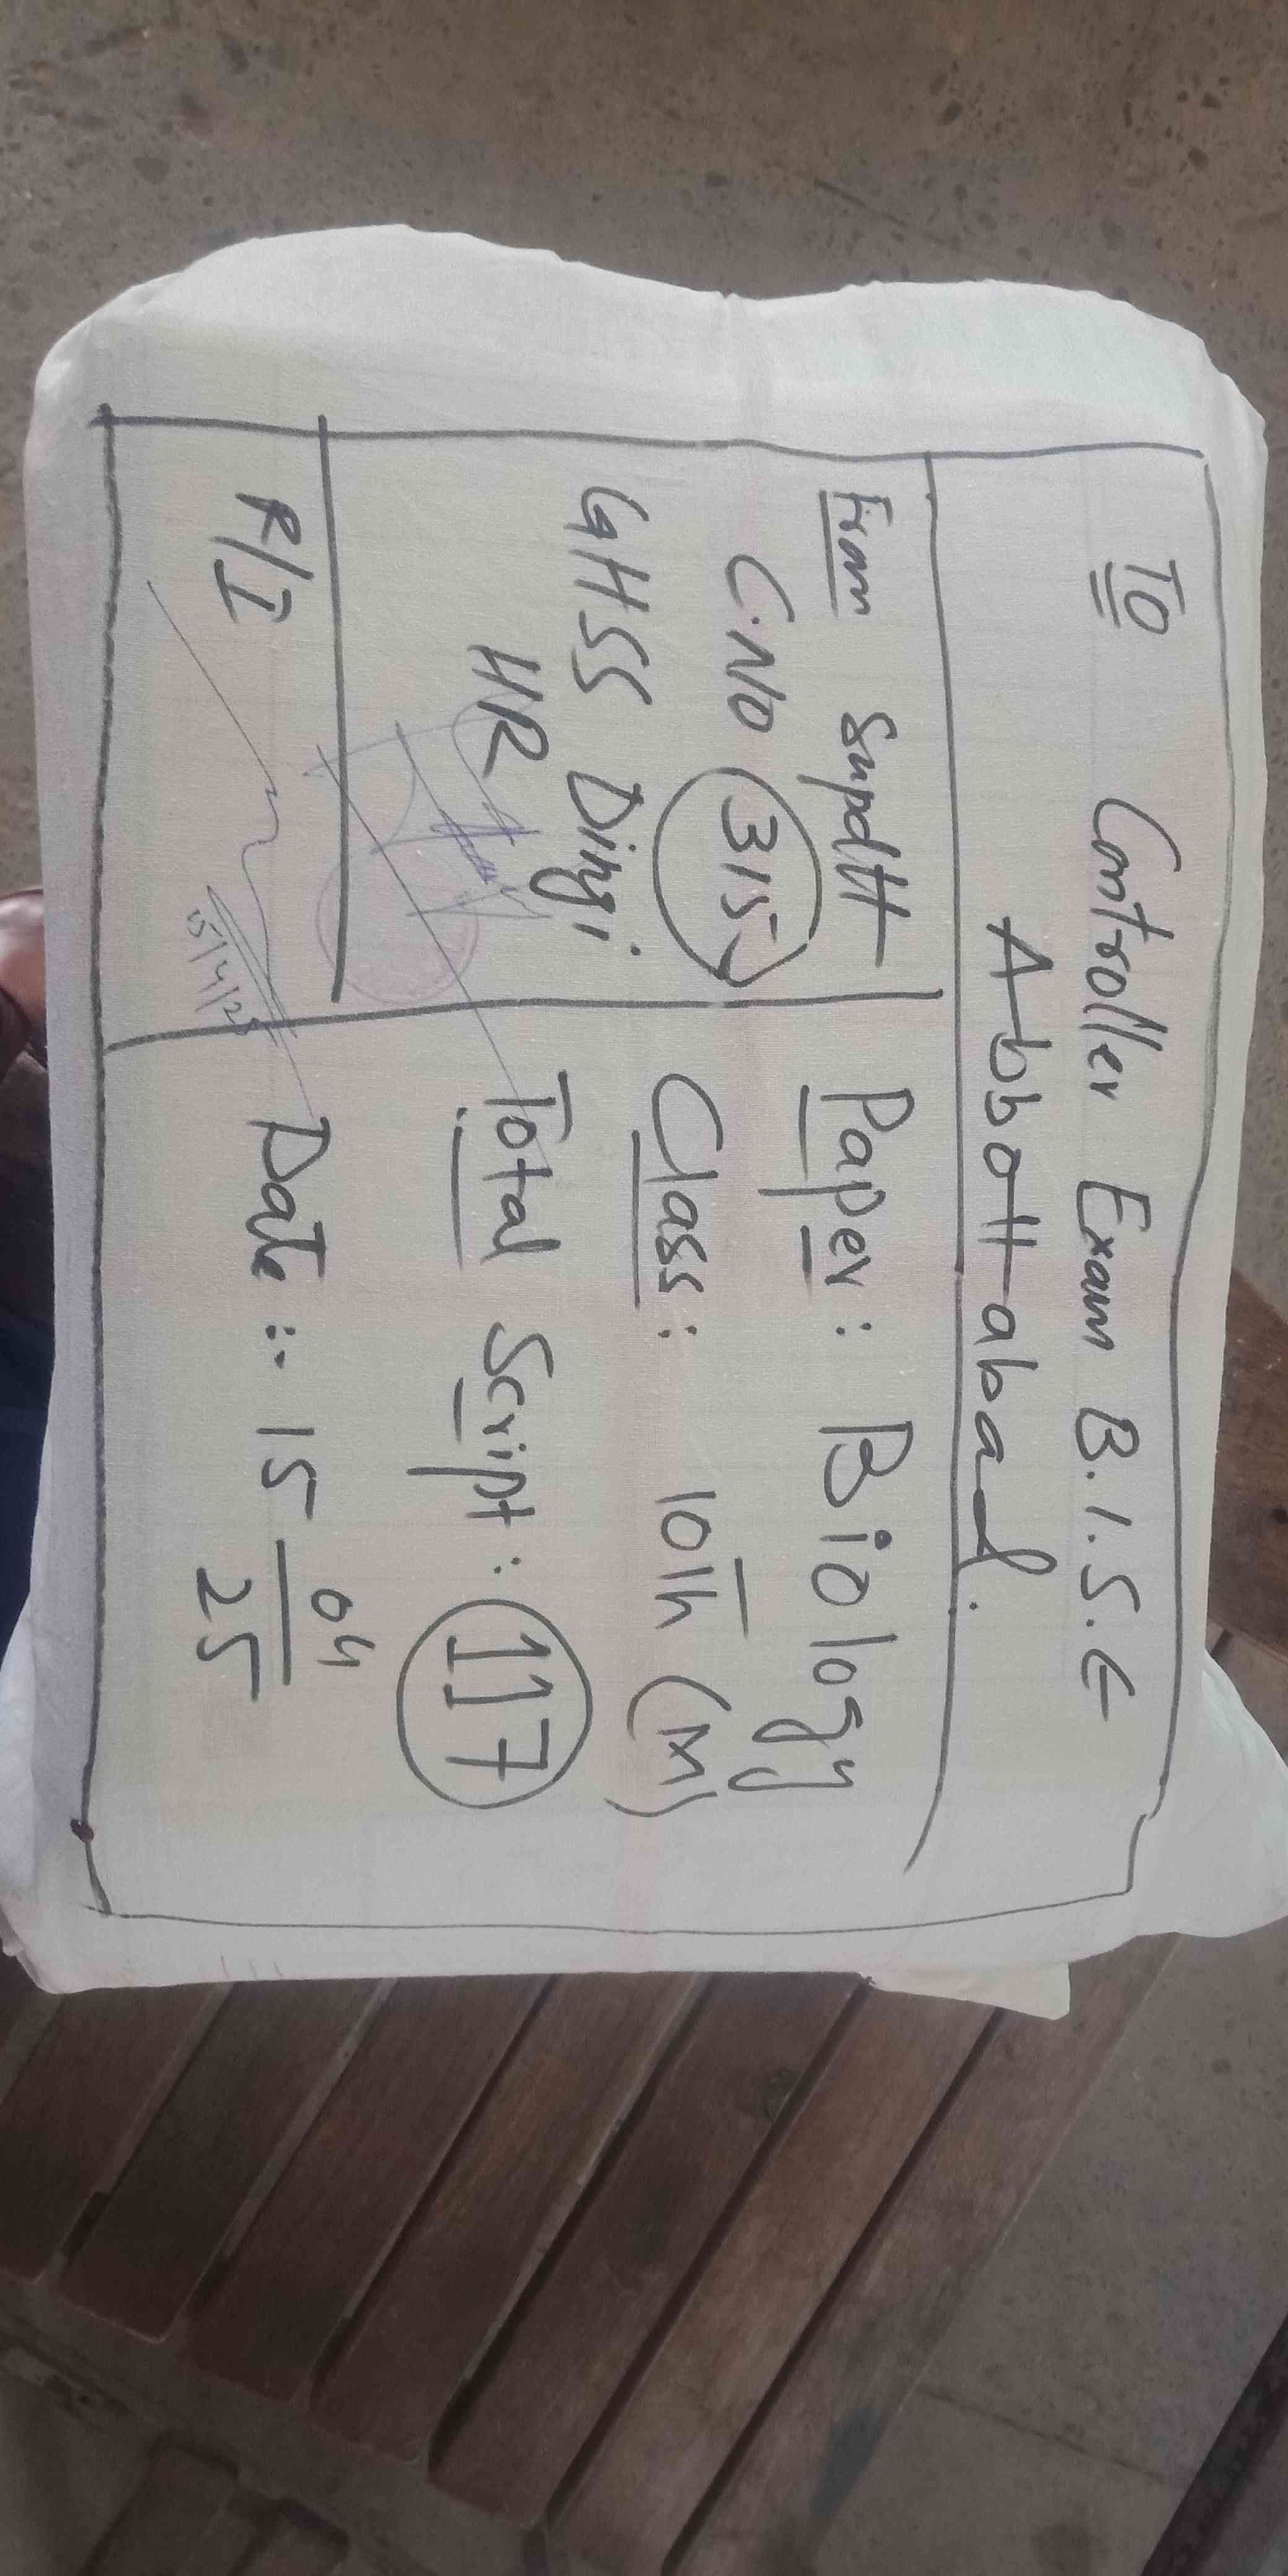 To Controller Exam B.I.S.E
Abbottabad.
From Supdtt
C.No 315
GHSS Dingi
HR
R/I
15/4/25
Paper: Biology
Class: 10th (M)
Total Script: 117
Date:- 15 04/25